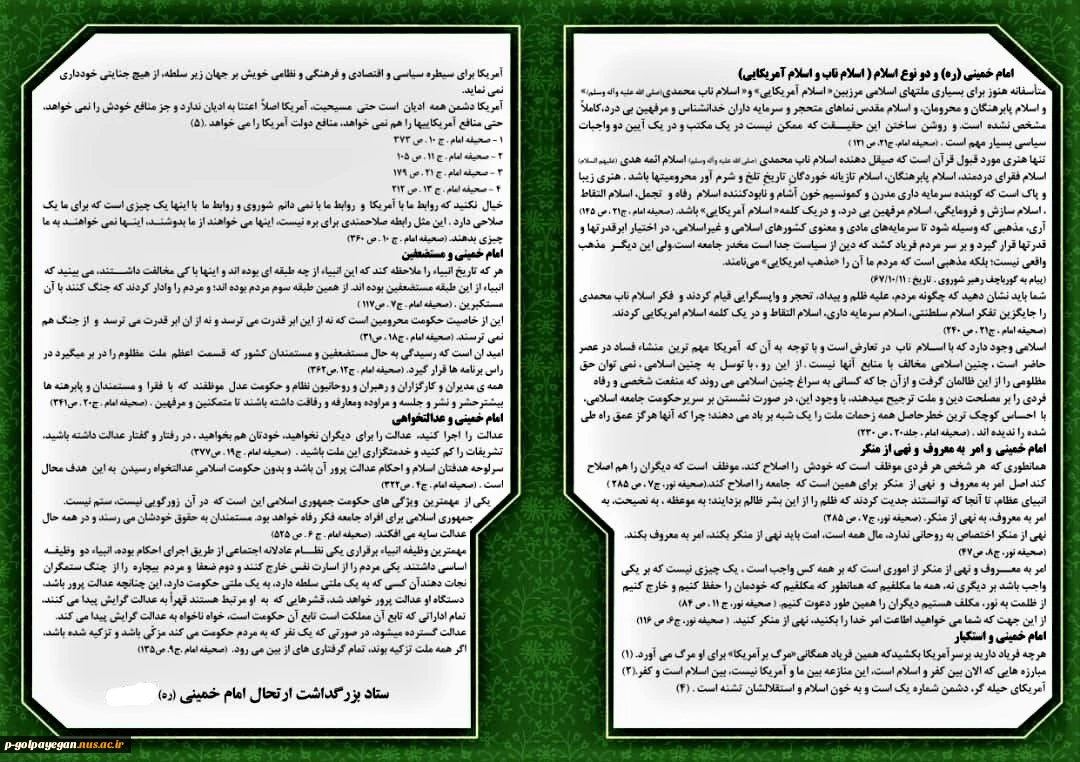 امام خمینی (ره) و دو نوع اسلام ( اسلام ناب و اسلام آمریکایی)
متأسفانه هنوز برای بسیاری ملتهای اسلامی مرزبین« اسلام آمریکایی» و« اسلام ناب محمدی(صلی الله علیه وآله وسلم)»
و اسلام پابرهنگان و محرومان، و اسلام مقدس نماهای متحجر و سرمایه داران خدانشناس و مرفهین بی درد، کاملاً
مشخص نشده است. و روشن ساختن این حقیـــقت که ممکن نیست در یک مکتب و در یک آیین دو واجبات
سیاسی بسیار مهم است . (صحیفه امام، ج۲۱، ص ۱۲۱ )
تنها هنری مورد قبول قرآن است که صیقل دهنده اسلام ناب محمدی (صلی الله علیه وآله وسلم) اسلام ائمه هدی (علیهم السلام)
اسلام فقرای دردمند، اسلام پابرهنگان، اسلام تازیانه خوردگان تاریخ تلخ و شرم آور محرومیتها باشد . هنری زیبا
و پاک است که کوبنده سرمایه داری مدرن و کمونسیم خون آشام و نابودکننده اسلام رفاه و تجمل، اسلام التقاط
، اسلام سازش و فرومایگی، اسلام مرفهین بی درد، و دریک کلمه« اسلام آمریکایی» باشد. (صحیفه امام ، ج۲۱ ، ص ۱۴۵)
آری، مذهبی که وسیله شود تا سرمایه‌های مادی و معنوی کشورهای اسلامی و غیراسلامی، در اختیار ابرقدرتها و
قدرتها قرار گیرد و بر سر مردم فریاد کشد که دین از سیاست جدا است مخدر جامعه است.ولی این دیگـــر مذهب
واقعی نیست؛ بلکه مذهبی است که مردم ما آن را «مذهب امریکایی» می‌نامند.
(پیام به گورباچف رهبر شوروی . تاریخ : ۶۷/۱۰/۱۱)
شما باید نشان دهید که چگونه مردم، علیه ظلم و بیداد، تحجر و واپسگرایی قیام کردند و فکر اسلام ناب محمدی
را جایگزین تفکر اسلام سلطنتی، اسلام سرمایه داری، اسلام التقاط و در یک کلمه اسلام امریکایی کردند.
(صحیفه امام ، ج۲۱ ، ص ۲۴۰)
اسلامی وجود دارد که با اســـلام ناب در تعارض است و با توجه به آن که آمریکا مهم ترین منشاء فساد در عصر
حاضر است ، چنین اسلامی مخالف با منابع آنها نیست . از این رو ، با توسل به چنین اسلامی ، نمی توان حق
مظلومی را از این ظالمان گرفت و ازآن جا که کسانی به سراغ چنین اسلامی می روند که منفعت شخصی و رفاه
فردی را بر مصلحت دین و ملت ترجیح میدهند، با وجود این، در صورت نشستن بر سریرحکومت جامعه اسلامی،
با احساس کوچک ترین خطرحاصل همه زحمات ملت را یک شبه بر باد می دهند؛ چرا که آنها هرگز عمق راه طی
شده را ندیده اند . (صحیفه امام ، جلد۲۰ ، ص ۲۳۰)
امام خمینی و امر به معروف و نهی از منکر
همانطوری که هر شخص هر فردی موظف است که خودش را اصلاح کند، موظف است که دیگران را هم اصلاح
کند اصل امر به معروف و نهی از منکر برای همین است که جامعه را اصلاح کند.(صحیفه نور، ج۷ ، ص ۲۸۵ )
انبیای عظام، تا آنجا که توانستند جدیت کردند که ظلم را از این بشر ظالم بزدایند؛ به موعظه ، به نصیحت، به
امر به معروف، به نهی از منکر. (صحیفه نور، ج۷ ، ص ۲۸۵)
نهی از منکر اختصاص به روحانی ندارد، مال همه است، امت باید نهی از منکر بکند، امر به معروف بکند.
(صحیفه نور، ج۸، ص۴۷)
امر به معـــروف و نهی از منکر از اموری است که بر همه کس واجب است ، یک چیزی نیست که بر یکی
واجب باشد بر دیگری نه، همه ما مکلفیم که همانطور که مکلفیم که خودمان را حفظ کنیم و خارج کنیم
از ظلمت به نور، مکلف هستیم دیگران را همین طور دعوت کنیم. ( صحیفه نور، ج ۱۱ ، ص ۸۴)
از این جهت که شما می خواهید اطاعت امر خدا را بکنید، نهی از منکر کنید. ( صحیفه نور، ج۶، ص ۱۱۶)
امام خمینی و استکبار
هرچه فریاد دارید برسرآمریکا بکشیدکه همین فریاد همگانی«مرگ برآمریکا» برای او مرگ می آورد. (۱)
مبارزه هایی که الان بین کفر و اسلام است، این منازعه بین ما و آمریکا نیست، بین اسلام است و کفر.(۲)
آمریکای حیله گر، دشمن شماره یک است و به خون اسلام و استقلالشان تشنه است . (۴)
آمریکا برای سیطره سیاسی و اقتصادی و فرهنگی و نظامی خویش بر جهان زیر سلطه، از هیچ جنایتی خودداری
نمی نماید.
آمریکا دشمن همه ادیان است حتی مسیحیت، آمریکا اصلاً اعتنا به ادیان ندارد و جز منافع خودش را نمی خواهد،
حتی منافع آمریکاییها را هم نمی خواهد، منافع دولت آمریکا را می خواهد .(۵)
۱ - صحیفه امام . ج ۱۰ . ص ۳۷۳
۲ - صحیفه امام . ج ۱۱ . ص ۱۰۵
۳ - صحیفه امام . ج ۲۱ . ص ۱۷۹
۴ - صحیفه امام . ج ۱۳ . ص ۲۱۲
خیال نکنید که روابط ما با آمریکا و روابط ما با نمی دانم شوروی و روابط ما با اینها یک چیزی است که برای ما یک
صلاحی دارد . این مثل رابطه صلاحمندی برای بره نیست، اینها می خواهند از ما بدوشنــد، اینــها نمی خواهنـد به ما
چیزی بدهند. (صحیفه امام . ج ۱۰ . ص ۳۶۰)
امام خمینی و مستضعفین
هر که تاریخ انبیاء را ملاحظه کند که این انبیاء از چه طبقه ای بوده اند و اینها با کی مخالفت داشــتند، می بینید که
انبیاء از این طبقه مستضعفین بوده اند. از همین طبقه سوم مردم بوده اند؛ و مردم را وادار کردند که جنگ کنند با آن
مستکبرین . (صحیفه امام . ج۷ . ص۱۱۷ )
این از خاصیت حکومت محرومین است که نه از این ابر قدرت می ترسد و نه از ان ابر قدرت می ترسد و از جنگ هم
نمی ترسند. (صحیفه امام . ج۱۸ . ص۳۱)
امید ان است که رسیدگی به حال مستضعفین و مستمندان کشور که قسمت اعظم ملت مظلوم را در بر میگیرد در
راس برنامه ها قرار گیرد. (صحیفه امام . ج۱۲.ص۳۶۲)
همه ی مدیران و کارگزاران و رهبران و روحانیون نظام و حکومت عدل موظفند که با فقرا و مستمندان و پابرهنه ها
بیشترحشر و نشر و جلسه و مراوده ومعارفه و رفاقت داشته باشند تا متمکنین و مرفهین . (صحیفه امام .ج۲۰ . ص۳۴۱)
امام خمینی و عدالتخواهی
عدالت را اجرا کنید، عدالت را برای دیگران نخواهید، خودتان هم بخواهید ، در رفتار و گفتار عدالت داشته باشید،
تشریفات را کم کنید و خدمتگزاری این ملت باشید . (صحیفه امام . ج۱۹ . ص۳۷۷)
سرلوحه هدفتان اسلام و احکام عدالت پرور آن باشد و بدون حکومت اسلامی عدالتخواه رسیدن به این هدف محال
است . (صحیفه امام . ج۴ . ص۳۲۲)
یکی از مهمترین ویژگی های حکومت جمهوری اسلامی این است که در آن زورگویی نیست، ستم نیست.
جمهوری اسلامی برای افراد جامعه فکر رفاه خواهد بود. مستمندان به حقوق خودشان می رسند و در همه حال
عدالت سایه می افکند. (صحیفه امام . ج ۶ . ص ۵۲۵)
مهمترین وظیفه انبیاء برقراری یکی نظـــام عادلانه اجتماعی از طریق اجرای احکام بوده، انبیاء دو وظیفــه
اساسی داشتند. یکی مردم را از اسارت نفس خارج کنند و دوم ضعفا و مردم بیچاره را از چنگ ستمگران
نجات دهندآن کسی که به یک ملتی سلطه دارد، به یک ملتی حکومت دارد، این چنانچه عدالت پرور باشد،
دستگاه او عدالت پرور خواهد شد، قشرهایی که به او مرتبط هستند قهراً به عدالت گرایش پیدا می کنند،
تمام اداراتی که تابع آن مملکت است تابع آن حکومت است، خواه ناخواه به عدالت گرایش پیدا می کند.
عدالت گسترده میشود، در صورتی که یک نفر که به مردم حکومت می کند مزکّی باشد و تزکیه شده باشد،
اگر همه ملت تزکیه بوند، تمام گرفتاری های از بین می رود. (صحیفه امام .ج۹. ص۱۳۵)
ستاد بزرگداشت ارتحال امام خمینی (ره)
p-golpayegan.nus.ac.ir